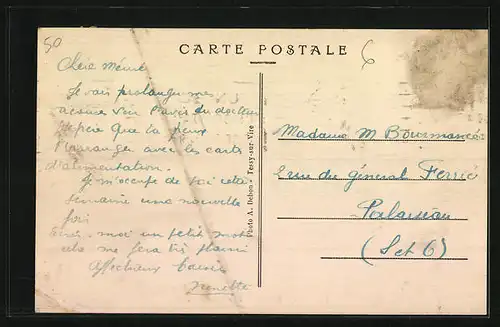 50
CARTE POSTALE
6
Chère Mémé
Je vais prolonger mes
avoir l'avis du docteur
J'espère que tu peux
t'arranger avec les cartes
d'alimentation.
Je m'occupe de toi cette
semaine une nouvelle
fois
Ecris-moi un petit mot
cela me fera très plaisir
Affectueux baisers
Nénette
Photo A. Dubos - Tessy-sur-Vire
Madame M.
rue du général Ferrié
Palaiseau
(S et O)